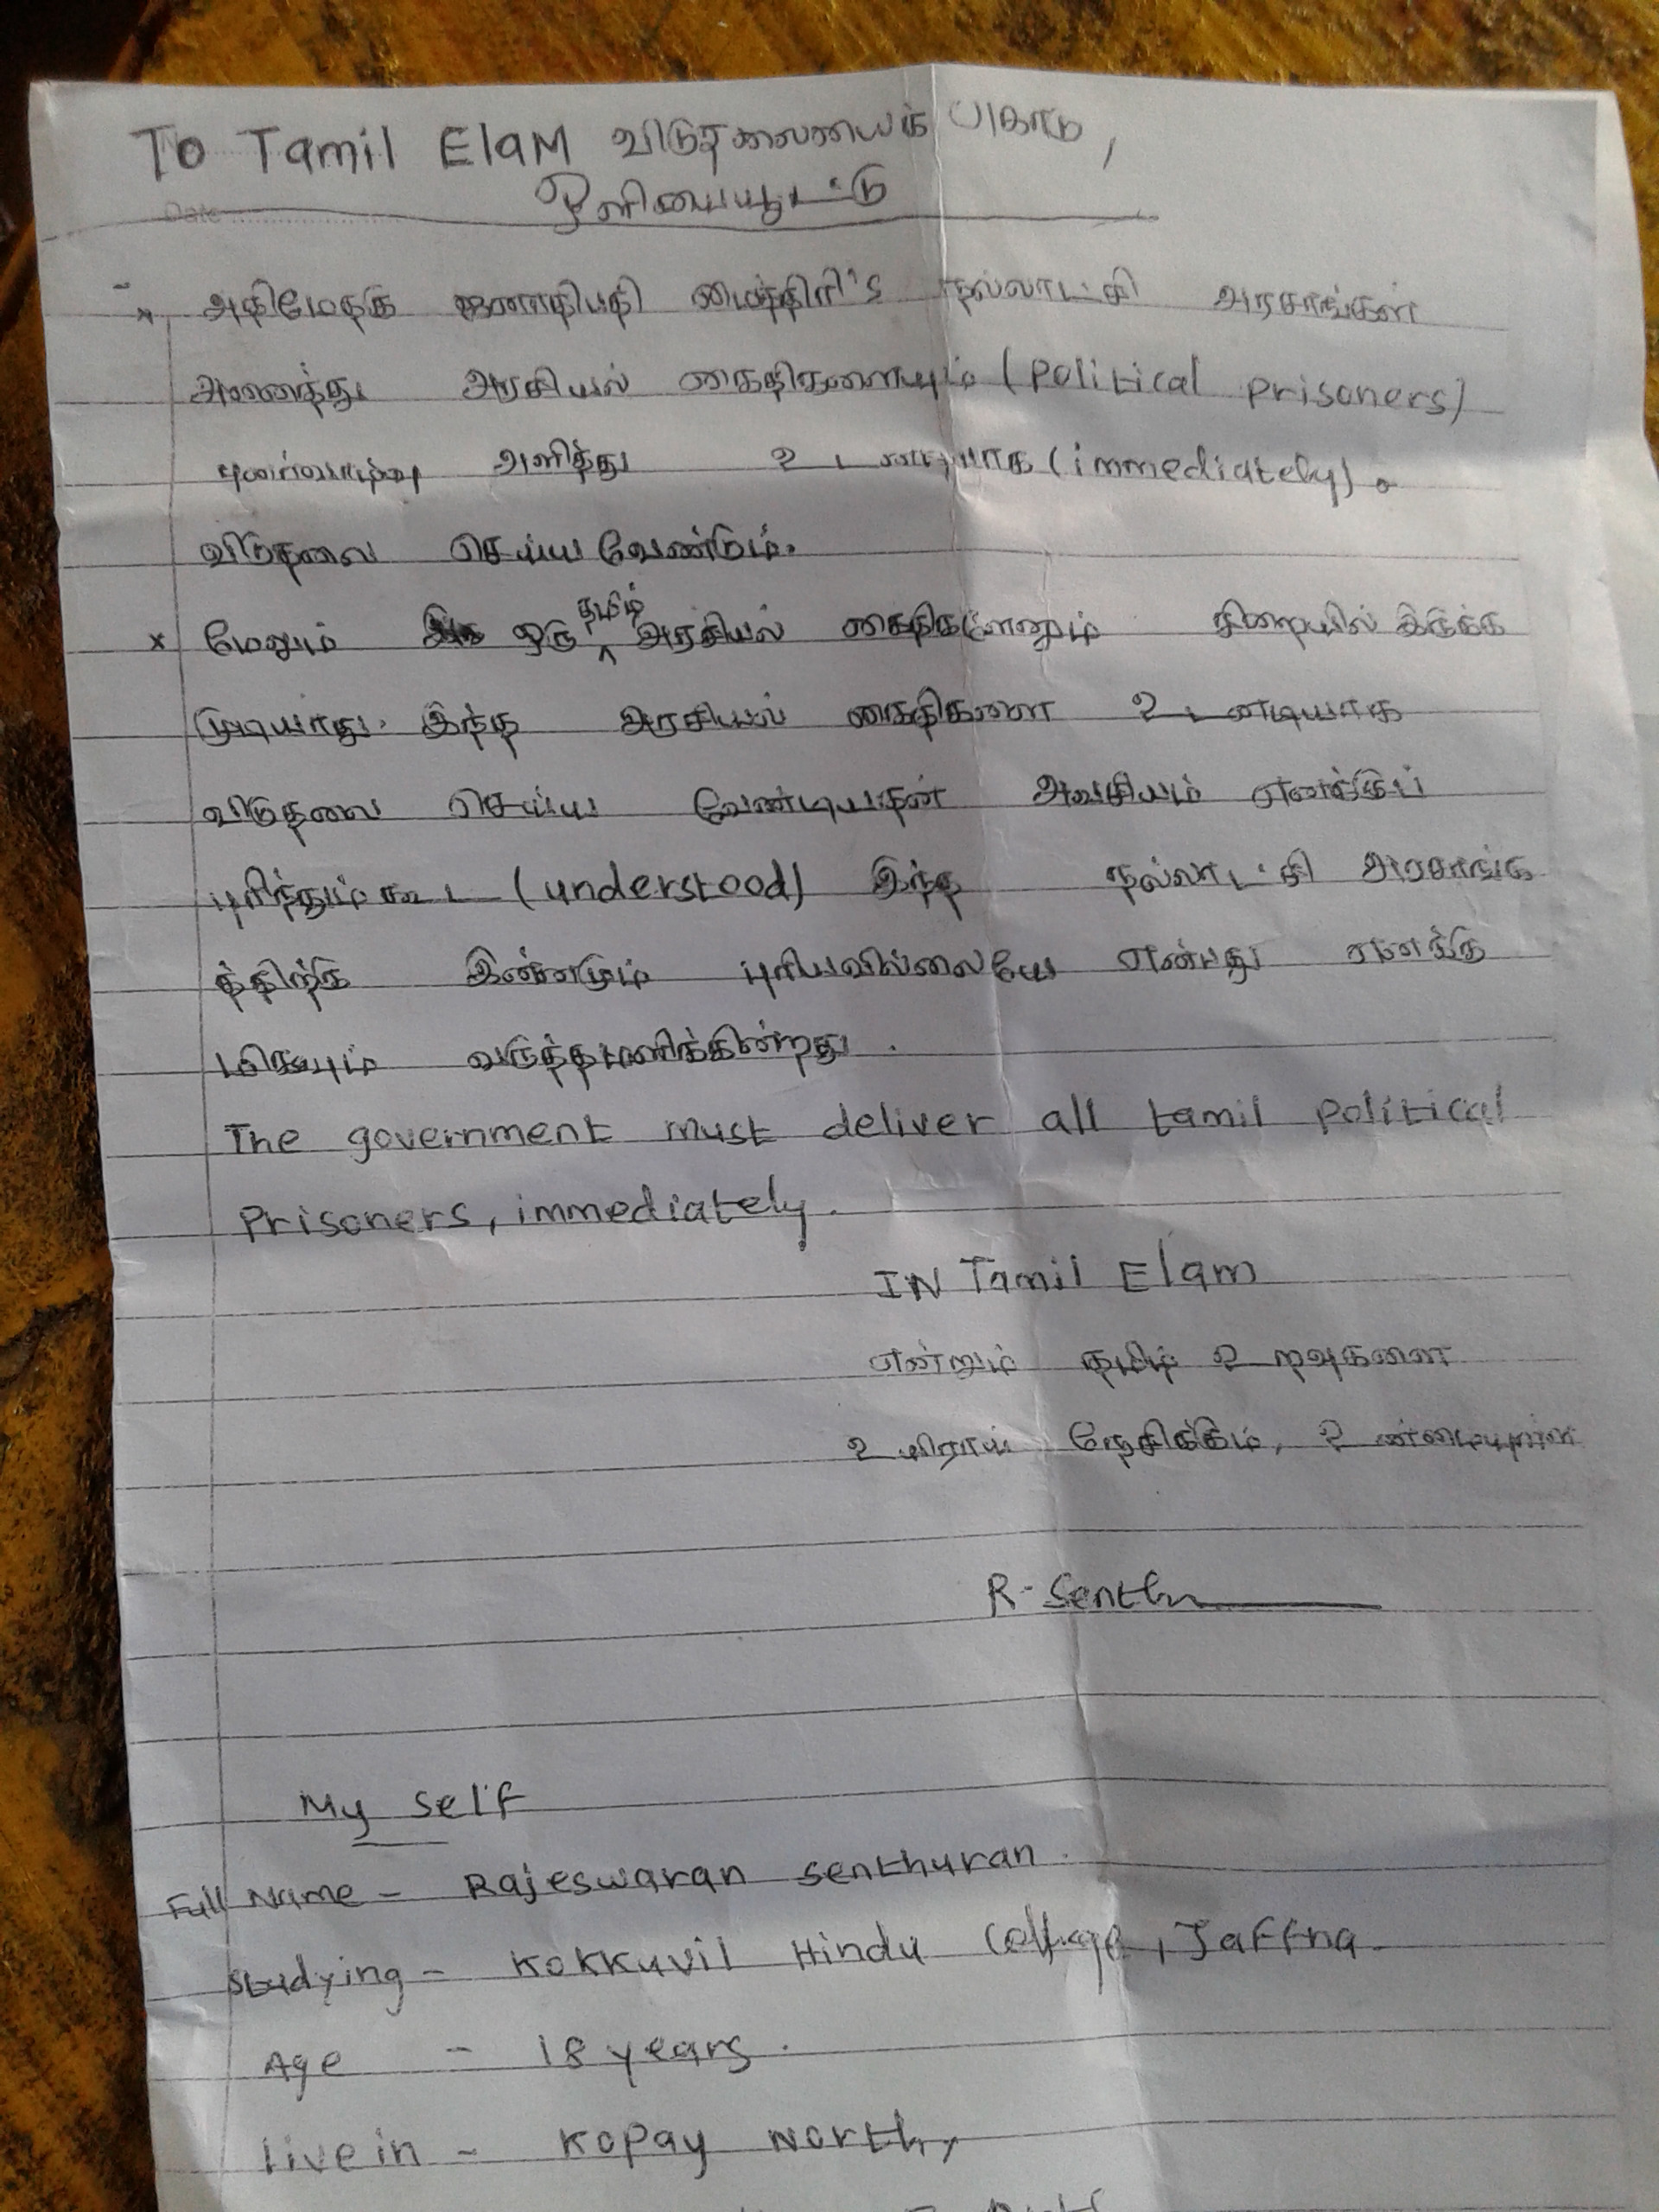 To Tamil Elam விடுதலையைக் கொடு,
ஒளியையூட்டு
Date
அதிமேதகு ஜனாதிபதி மைத்திரி's நல்லாட்சி அரசாங்கள்
அனைத்து அரசியல் கைதிகளையும் (Political Prisoners)
புனர்வாழ்வு அளித்து உடனடியாக (immediately).
விடுதலை செய்ய வேண்டும்.
x மேலும் ஒரு தமிழ் அரசியல் கைதிகளேனும் சிறையில் இருக்க
முடியாது. இந்த அரசியல் கைதிகளை உடனடியாக
விடுதலை செய்ய வேண்டியதன் அவசியம் எனக்குப்
புரிந்தும்கூட (understood) இந்த நல்லாட்சி அரசாங்க
த்திற்கு இன்னமும் புரியவில்லையே என்பது எனக்கு
மிகவும் வருத்தமளிக்கின்றது.
The government must deliver all tamil political
Prisoners, immediately.
IN Tamil Elam
என்றும் தமிழ் உறவுகளை
உயிராய் நேசிக்கும், உண்மையுள்ள
R. Senthu
My self
Full Name - Rajeswaran Senthuran.
Studying - Kokkuvil Hindu College, Jaffna.
Age - 18 years.
live in - Kopay North,